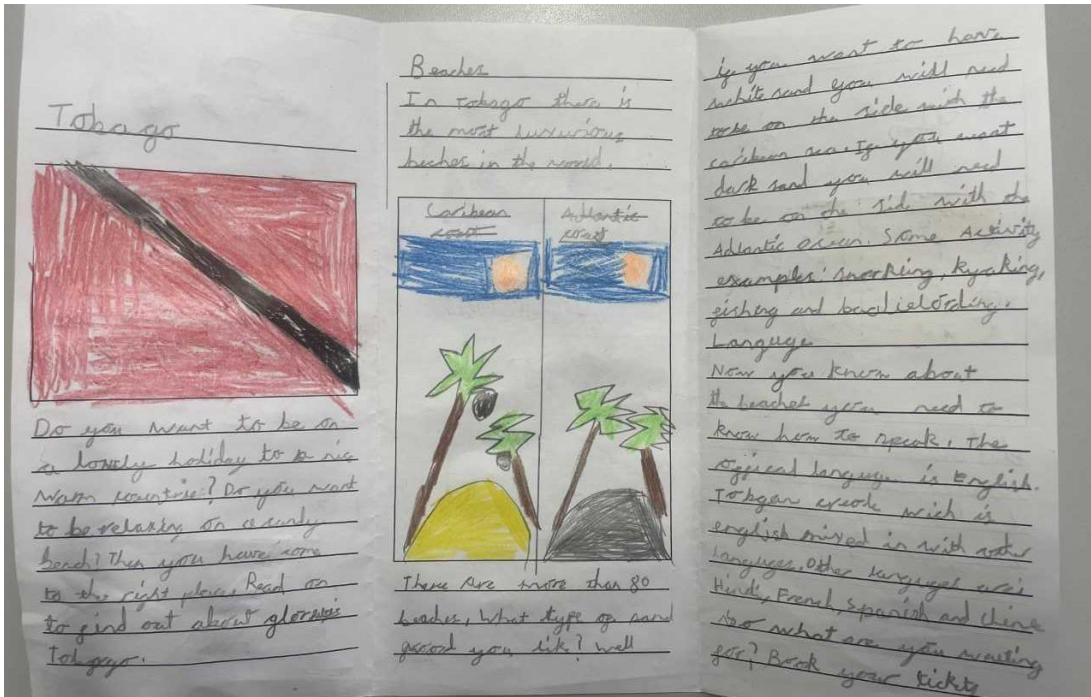 Tobago
Do you want to be on
a lovely holiday to a nic
warm countrie? Do you want
to be relaxing on a sandy
beach? Then you have come
to the right place. Read on
to find out about glorious
Tobago.
Beaches
In Tobago there is
the most luxurious
beches in the world.
Caribean
coast
Adlantic
coast
There are more than 80
beaches, What type of sand
would you like? Well
if you want to have
white sand you will need
to be on the side with the
caribean sea. If you want
dark sand you will need
to be on the side with the
Adlantic Ocean. Some Activity
examples: snorkling, kyaking,
fishing and
Languge
Now you know about
the beaches you need to
know how to speak. The
offical language is English.
Tobgan creole wich is
english mixed in with other
languges. Other languges are:
Hindi, French, Spanish and
so what are you waiting
for? Book your tickets